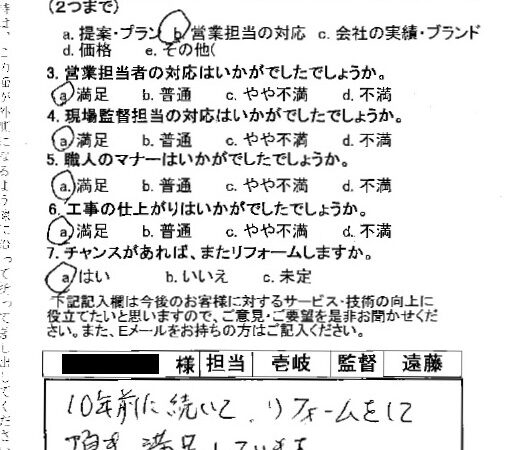 (2つまで)
a. 提案・プラン b. 営業担当の対応 c. 会社の実績・ブランド
d. 価格 e. その他(
3. 営業担当者の対応はいかがでしたでしょうか。
a. 満足 b. 普通 c. やや不満 d. 不満
4. 現場監督担当の対応はいかがでしたでしょうか。
a. 満足 b. 普通 c. やや不満 d. 不満
5. 職人のマナーはいかがでしたでしょうか。
a. 満足 b. 普通 c. やや不満 d. 不満
6. 工事の仕上がりはいかがでしたでしょうか。
a. 満足 b. 普通 c. やや不満 d. 不満
7. チャンスがあれば、またリフォームしますか。
a. はい b. いいえ c. 未定
下記記入欄は今後のお客様に対するサービス・技術の向上に
役立てたいと思いますので、ご意見・ご要望を是非お聞かせくだ
さい。また、Eメールをお持ちの方はご記入ください。
様 担当 壱岐 監督 遠藤
10年前に続いて、リフォームをして
頂き 満足しています